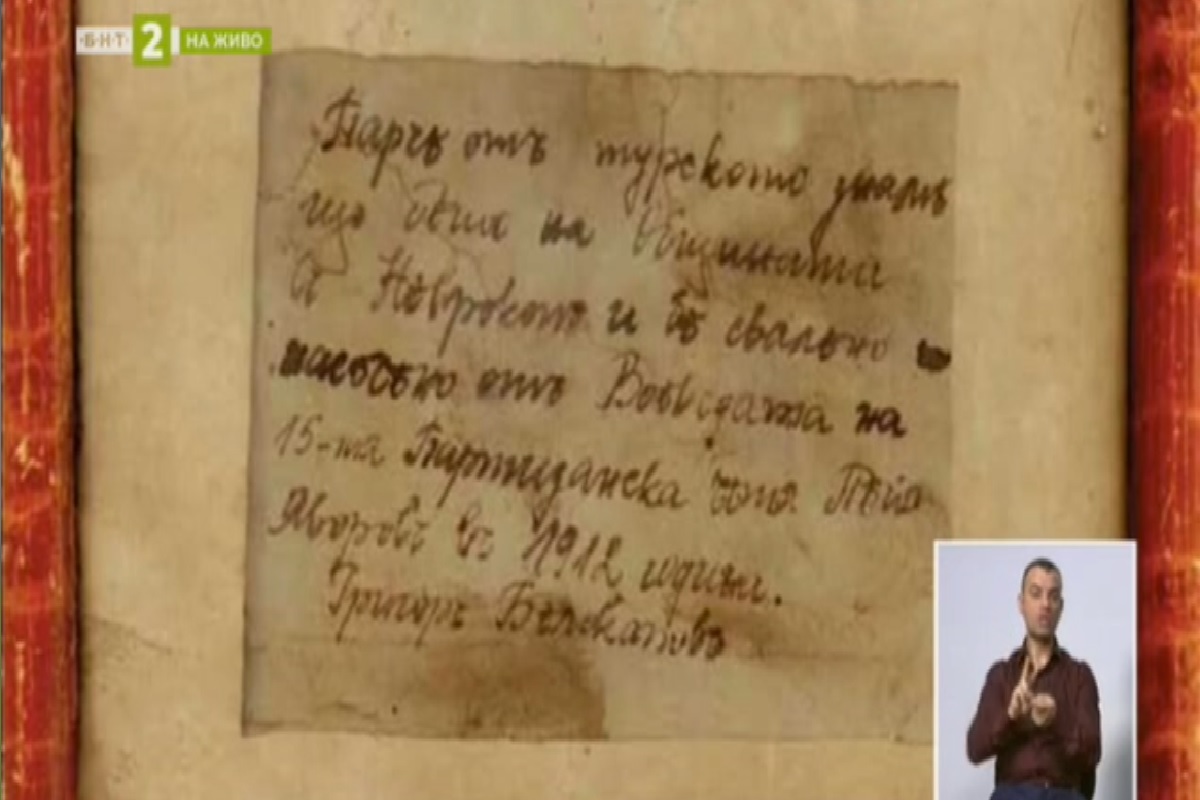 БНТ 2 НА ЖИВО
Парче отъ турското знаме
що беше на Общината
в Неврокопъ и бе свалено
насъсено отъ Воеводата на
15-та Партизанска чета Пейо
Яворовъ въ 1912 година.
Григоръ